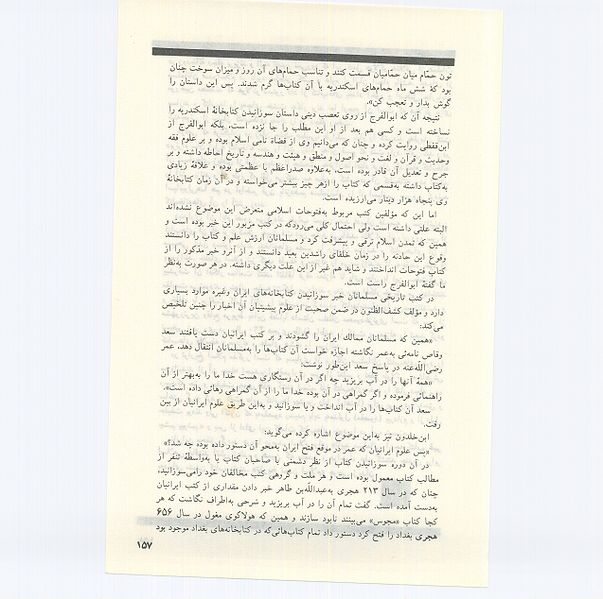 تون حمّام میان حمّامیان قسمت کنند و تناسب حمام‌های آن روز و میزان سوخت چنان
بود که شش ماه حمام‌های اسکندریه با آن کتاب‌ها گرم شدند. پس این داستان را
گوش بدار و تعجب کن».
نتیجه آن که ابوالفرج از روی تعصب دینی داستان سوزانیدن کتابخانهٔ اسکندریه را
نساخته است و کسی هم بعد از او این مطلب را جا نزده است، بلکه ابوالفرج از
ابن‌قفطی روایت کرده و چنان که می‌دانیم وی از قضاة نامی اسلام بوده و بر علوم فقه
وحدیث و قرآن و لغت و نحو اصول و منطق و هیئت و هندسه و تاریخ احاطه داشته و بر
جرح و تعدیل آن قادر بوده است، به‌علاوه صدراعظم با عظمتی بوده و علاقهٔ زیادی
به‌کتاب داشته به‌قسمی که کتاب را ازهر چیز بیشتر می‌خواسته و در آن زمان کتابخانهٔ
وی پنجاه هزار دینار می‌ارزیده است.
اما این که مؤلفین کتب مربوط به‌فتوحات اسلامی متعرض این موضوع نشده‌اند
البته علتی داشته است ولی احتمال کلی می‌رودکه در کتب مزبور این خبر بوده است و
همین که تمدن اسلام ترقی و پیشرفت کرد و مسلمانان ارزش علم و کتاب را دانستند
وقوع این حادثه را در زمان خلفای راشدین بعید دانستند و از آنرو خبر مذکور را از
کتاب فتوحات انداختند و شاید هم غیر از این علت دیگری داشته. در هر صورت به‌نظر
ما گفتهٔ ابوالفرج راست است.
در کتب تاریخی مسلمانان خبر سوزانیدن کتابخانه‌های ایران وغیره موارد بسیاری
دارد و مؤلف کشف‌الظنون در ضمن صحبت از علوم پیشینیان آن اخبار را چنین تلخیص
می‌کند:
«همین که مسلمانان ممالک ایران را گشودند و بر کتب ایرانیان دست یافتند سعد
وقاص نامه‌ئی به‌عمر نگاشته اجازه خواست آن کتاب‌ها را به‌مسلمانان انتقال دهد، عمر
رضی‌الله‌عنه در پاسخ سعد این‌طور نوشت:
«همهٔ آنها را در آب بریزید چه اگر در آن رستگاری هست خدا ما را به‌بهتر از آن
راهنمائی فرموده و اگر گمراهی در آن بوده خدا ما را از آن گمراهی رهائی داده است».
سعد آن کتاب‌ها را در آب انداخت و یا سوزانید و به‌این طریق علوم ایرانیان از بین
رفت.
ابن‌خلدون نیز به‌این موضوع اشاره کرده می‌گوید:
«پس علوم ایرانیان که عمر در موقع فتح ایران به‌محو آن دستور داده بوده چه شد؟»
در آن دوره سوزانیدن کتاب از نظر دشمنی با صاحبان کتاب یا به‌واسطهٔ تنفر از
مطالب کتاب معمول بوده است و هر ملت و گروهی کتب مخالفان خود رامی‌سوزانید،
چنان که در سال ۲۱۳ هجری به‌عبدالله‌بن طاهر خبر دادن مقداری از کتب ایرانیان
به‌دست آمده است. گفت تمام آن را در آب بریزید و شرحی به‌اطراف نگاشت که هر
کجا کتاب «مجوس» می‌بینند نابود سازند و همین که هولاکوی مغول در سال ۶۵۶
هجری بغداد را فتح کرد دستور داد تمام کتاب‌هائی‌که در کتابخانه‌های بغداد موجود بود
۱۵۷